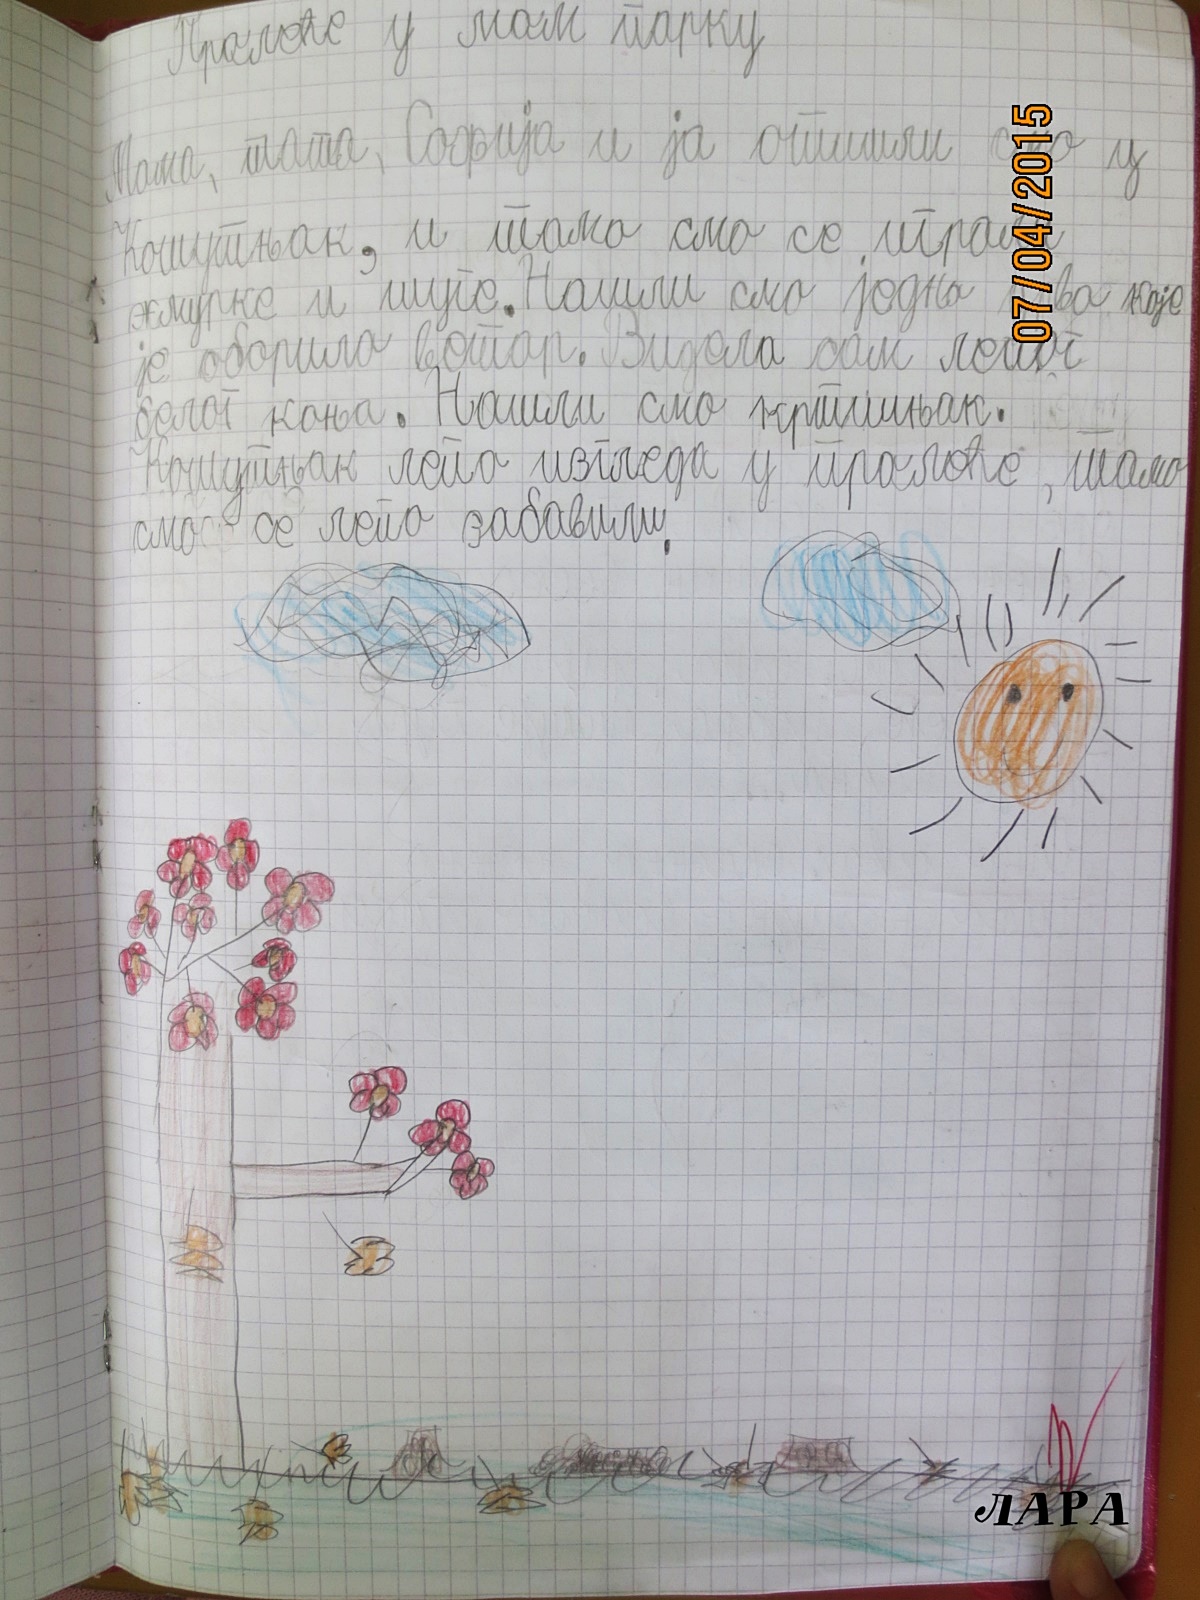 Пролеће у мом парку
Мама, тата, Софија и ја отишли смо у
Кошутњак, и тамо смо се играли
жмурке и шуге. Нашли смо једно дрво које
је оборио ветар. Видела сам лепог
белог коња. Нашли смо кртињак.
Кошутњак лепо изгледа у пролеће, тамо
смо се лепо забавили.
07/04/2015
ЛАРА